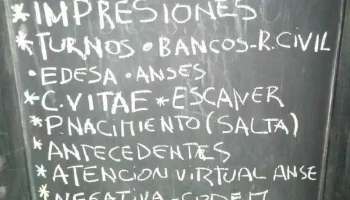 *IMPRESIONES
*TURNOS•BANCOS-R.CIVIL
•EDESA•ANSES
*C.VITAE*ESCANER
*P.NACIMIENTO(SALTA)
*ANTECEDENTES
*ATENCION VIRTUAL ANSE
*NEGATIVA-CODEM